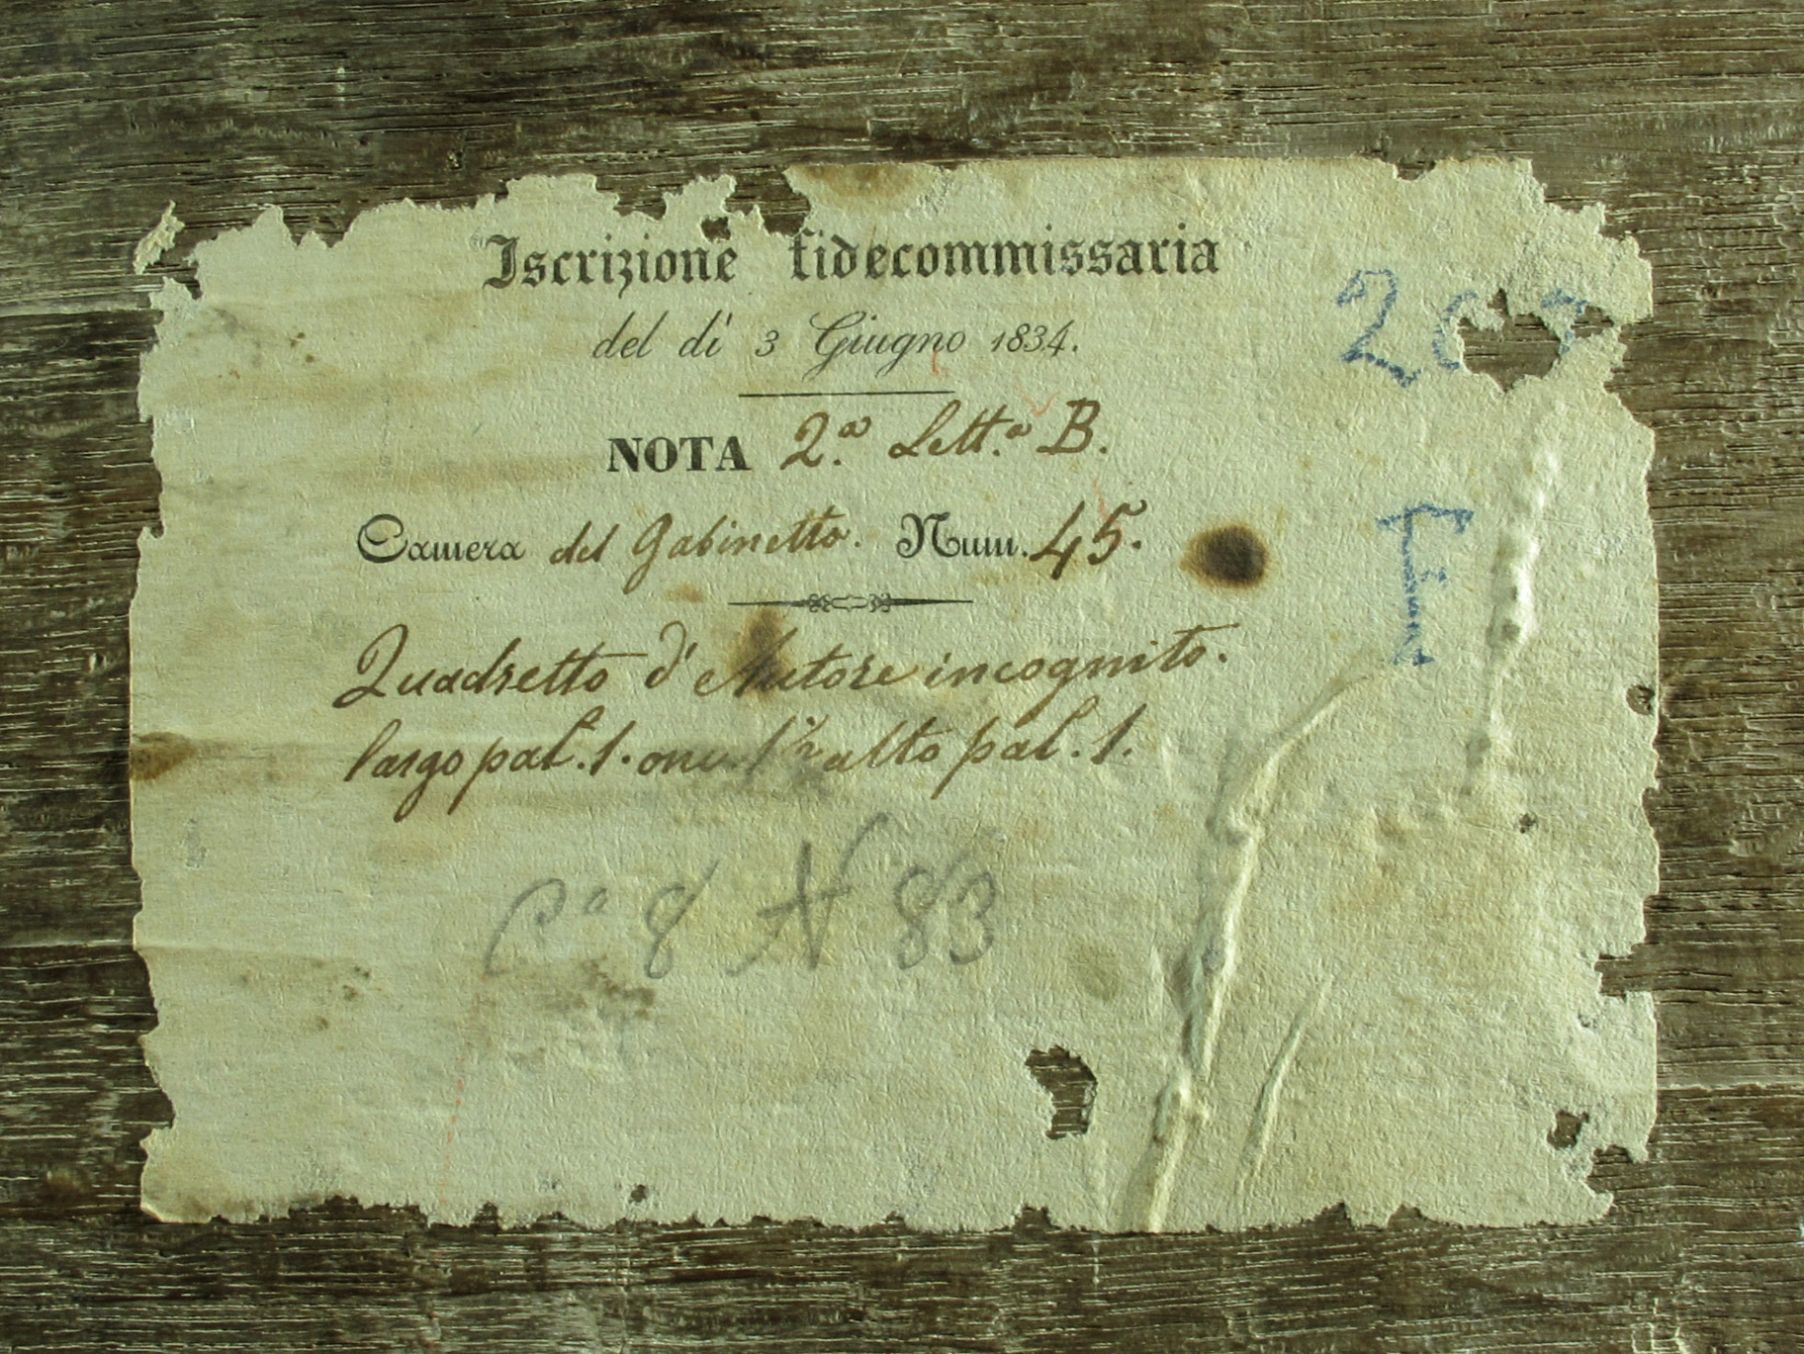 Iscrizione fidecommissaria
del dì 3 Giugno 1834.
NOTA 2.ª Lett.ª B.
Camera del Gabinetto. Num. 45.
Quadretto d'Autore incognito.
largo pal. 1. 1/2 alto pal. 1.
Cª 8 N 83
F